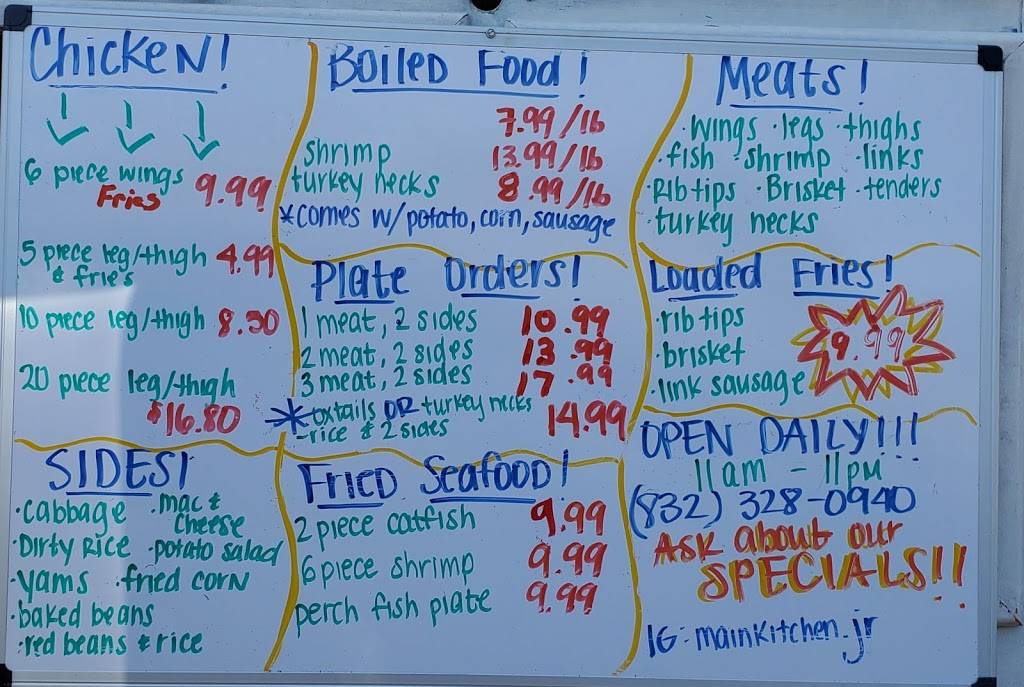 Chicken!
6 piece wings 9.99
Fries
5 piece leg/thigh 4.99
& fries
10 piece leg/thigh 8.50
20 piece leg/thigh
$16.80
SIDES!
·cabbage ·mac &
cheese
·Dirty Rice ·potato salad
·yams ·fried corn
·baked beans
·red beans & rice
Boiled Food!
7.99/lb
shrimp 13.99/lb
turkey necks 8.99/lb
*comes w/potato, corn, sausage
Plate Orders!
1 meat, 2 sides 10.99
2 meat, 2 sides 13.99
3 meat, 2 sides 17.99
*oxtails OR turkey necks 14.99
-rice & 2 sides
Fried Seafood!
2 piece catfish 9.99
6 piece shrimp 9.99
perch fish plate 9.99
Meats!
·wings ·legs ·thighs
·fish ·shrimp ·links
·Rib tips ·Brisket ·tenders
·turkey necks
Loaded Fries!
·rib tips
·brisket 9.99
·link sausage
OPEN DAILY!!!
11am - 11pm
(832) 328-0940
Ask about our
SPECIALS!!
IG: mainkitchen.jr